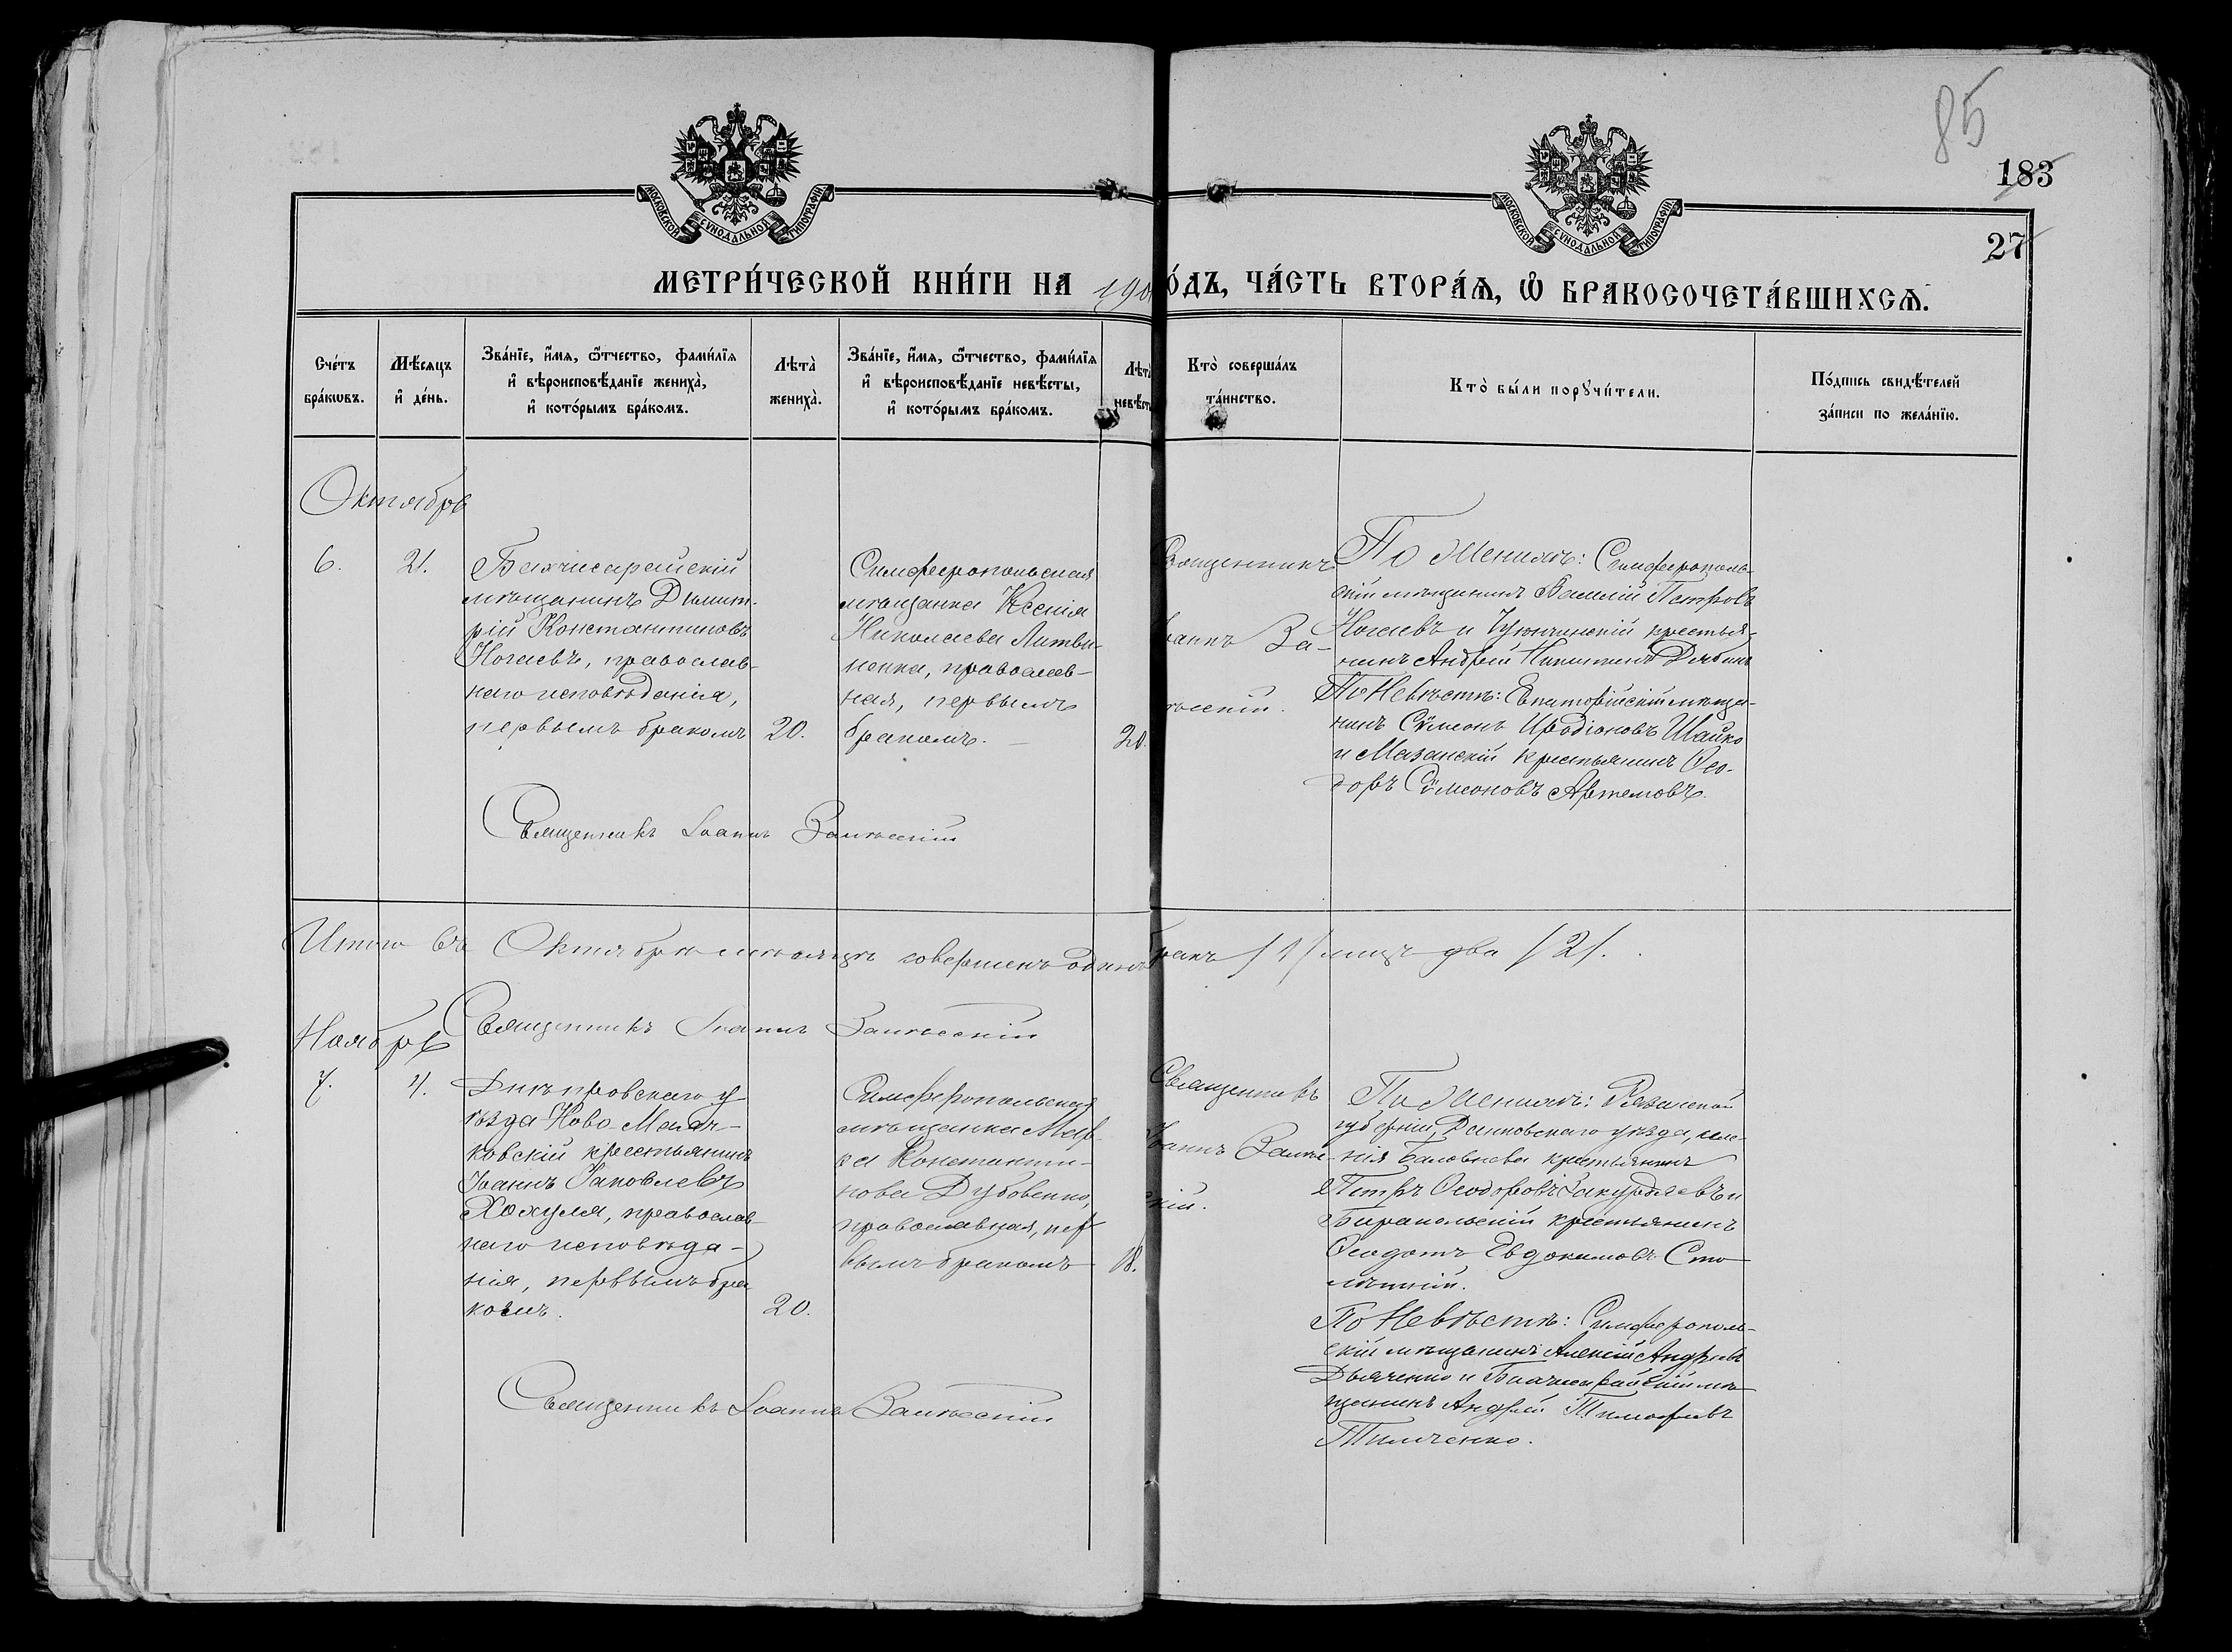 85
183
27
МОСКОВСКОЙ СѴНОДАЛЬНОЙ ТИПОГРАФІИ
МОСКОВСКОЙ СѴНОДАЛЬНОЙ ТИПОГРАФІИ
МЕТРИ́ЧЕСКОЙ КНИ́ГИ НА 190 О́ДЪ, ЧА́СТЬ ВТОРА́Ѧ, Ѽ БРАКОСОЧЕТА́ВШИХСѦ.
Сче́тъ
бра́кѡвъ.
Мѣ́сѧцъ
и҆ де́нь.
Зва́нїе, и҆́мѧ, ѻ҆́тчество, фами́лїѧ
и҆ вѣроисповѣ́данїе жениха̀,
и҆ кото́рымъ бра́комъ.
Лѣта̀
жениха̀.
Зва́нїе, и҆́мѧ, ѻ҆́тчество, фами́лїѧ
и҆ вѣроисповѣ́данїе невѣ́сты,
и҆ кото́рымъ бра́комъ.
Лѣта̀
невѣст
Кто̀ соверша́лъ
та́инство.
Кто̀ бы́ли порꙋчи́тели.
По́дпись свидѣ́телей
за́писи по жела́нїю.
Октябрь
6.
21.
Бахчисарайскій
мѣщанинъ Димит-
рій Константиновъ
Ногаевъ, православ-
наго исповѣданія,
первымъ бракомъ
20.
Симферопольская
мѣщанка Ксенія
Николаева Литви-
ненко, православ-
ная, первымъ
бракомъ.
20.
Священникъ
Іоаннъ За-
лѣсскій.
По Женихѣ: Симферополь-
скій мѣщанинъ Василій Петровъ
Ногаевъ и крестья-
нинъ Андрей Никитинъ
По Невѣстѣ: Евпаторійскій мѣща-
нинъ Сѵмеонъ Иродіоновъ Шайко
и Мазанскій крестьянинъ Ѳео-
доръ Сѵмеоновъ Артемовъ.
Священникъ Іоаннъ Залѣсскій
Итого въ Октябрѣ мѣсяцѣ совершенъ одинъ бракъ /1/ лицъ два /2/.
Священникъ Іоаннъ Залѣсскій
Ноябрь
7.
4.
Днѣпровскаго у-
ѣзда Ново Маяч-
ковскій крестьянинъ
Іоаннъ Яковлевъ
Хохуля, православ-
наго исповѣда-
нія, первымъ бра
комъ.
20.
Симферопольская
мѣщанка Мар-
Константи-
нова Дубовенко,
православная, пер-
вымъ бракомъ
18.
Священникъ
Іоаннъ Залѣс-
скій.
По Женихѣ: Рязанской
губерніи, Данковскаго уѣзда,
крестьянинъ
Петръ Ѳеодоровъ Закурдаевъ и
крестьянинъ
Ѳеодотъ Евдокимовъ Сто-
лѣтній.
По Невѣстѣ: Симферополь-
скій мѣщанинъ Алексій Андреевъ
Дьяченко и Бахчисарайскій мѣ-
щанинъ Андрей Тимофеевъ
Тимченко.
Священникъ Іоаннъ Залѣсскій